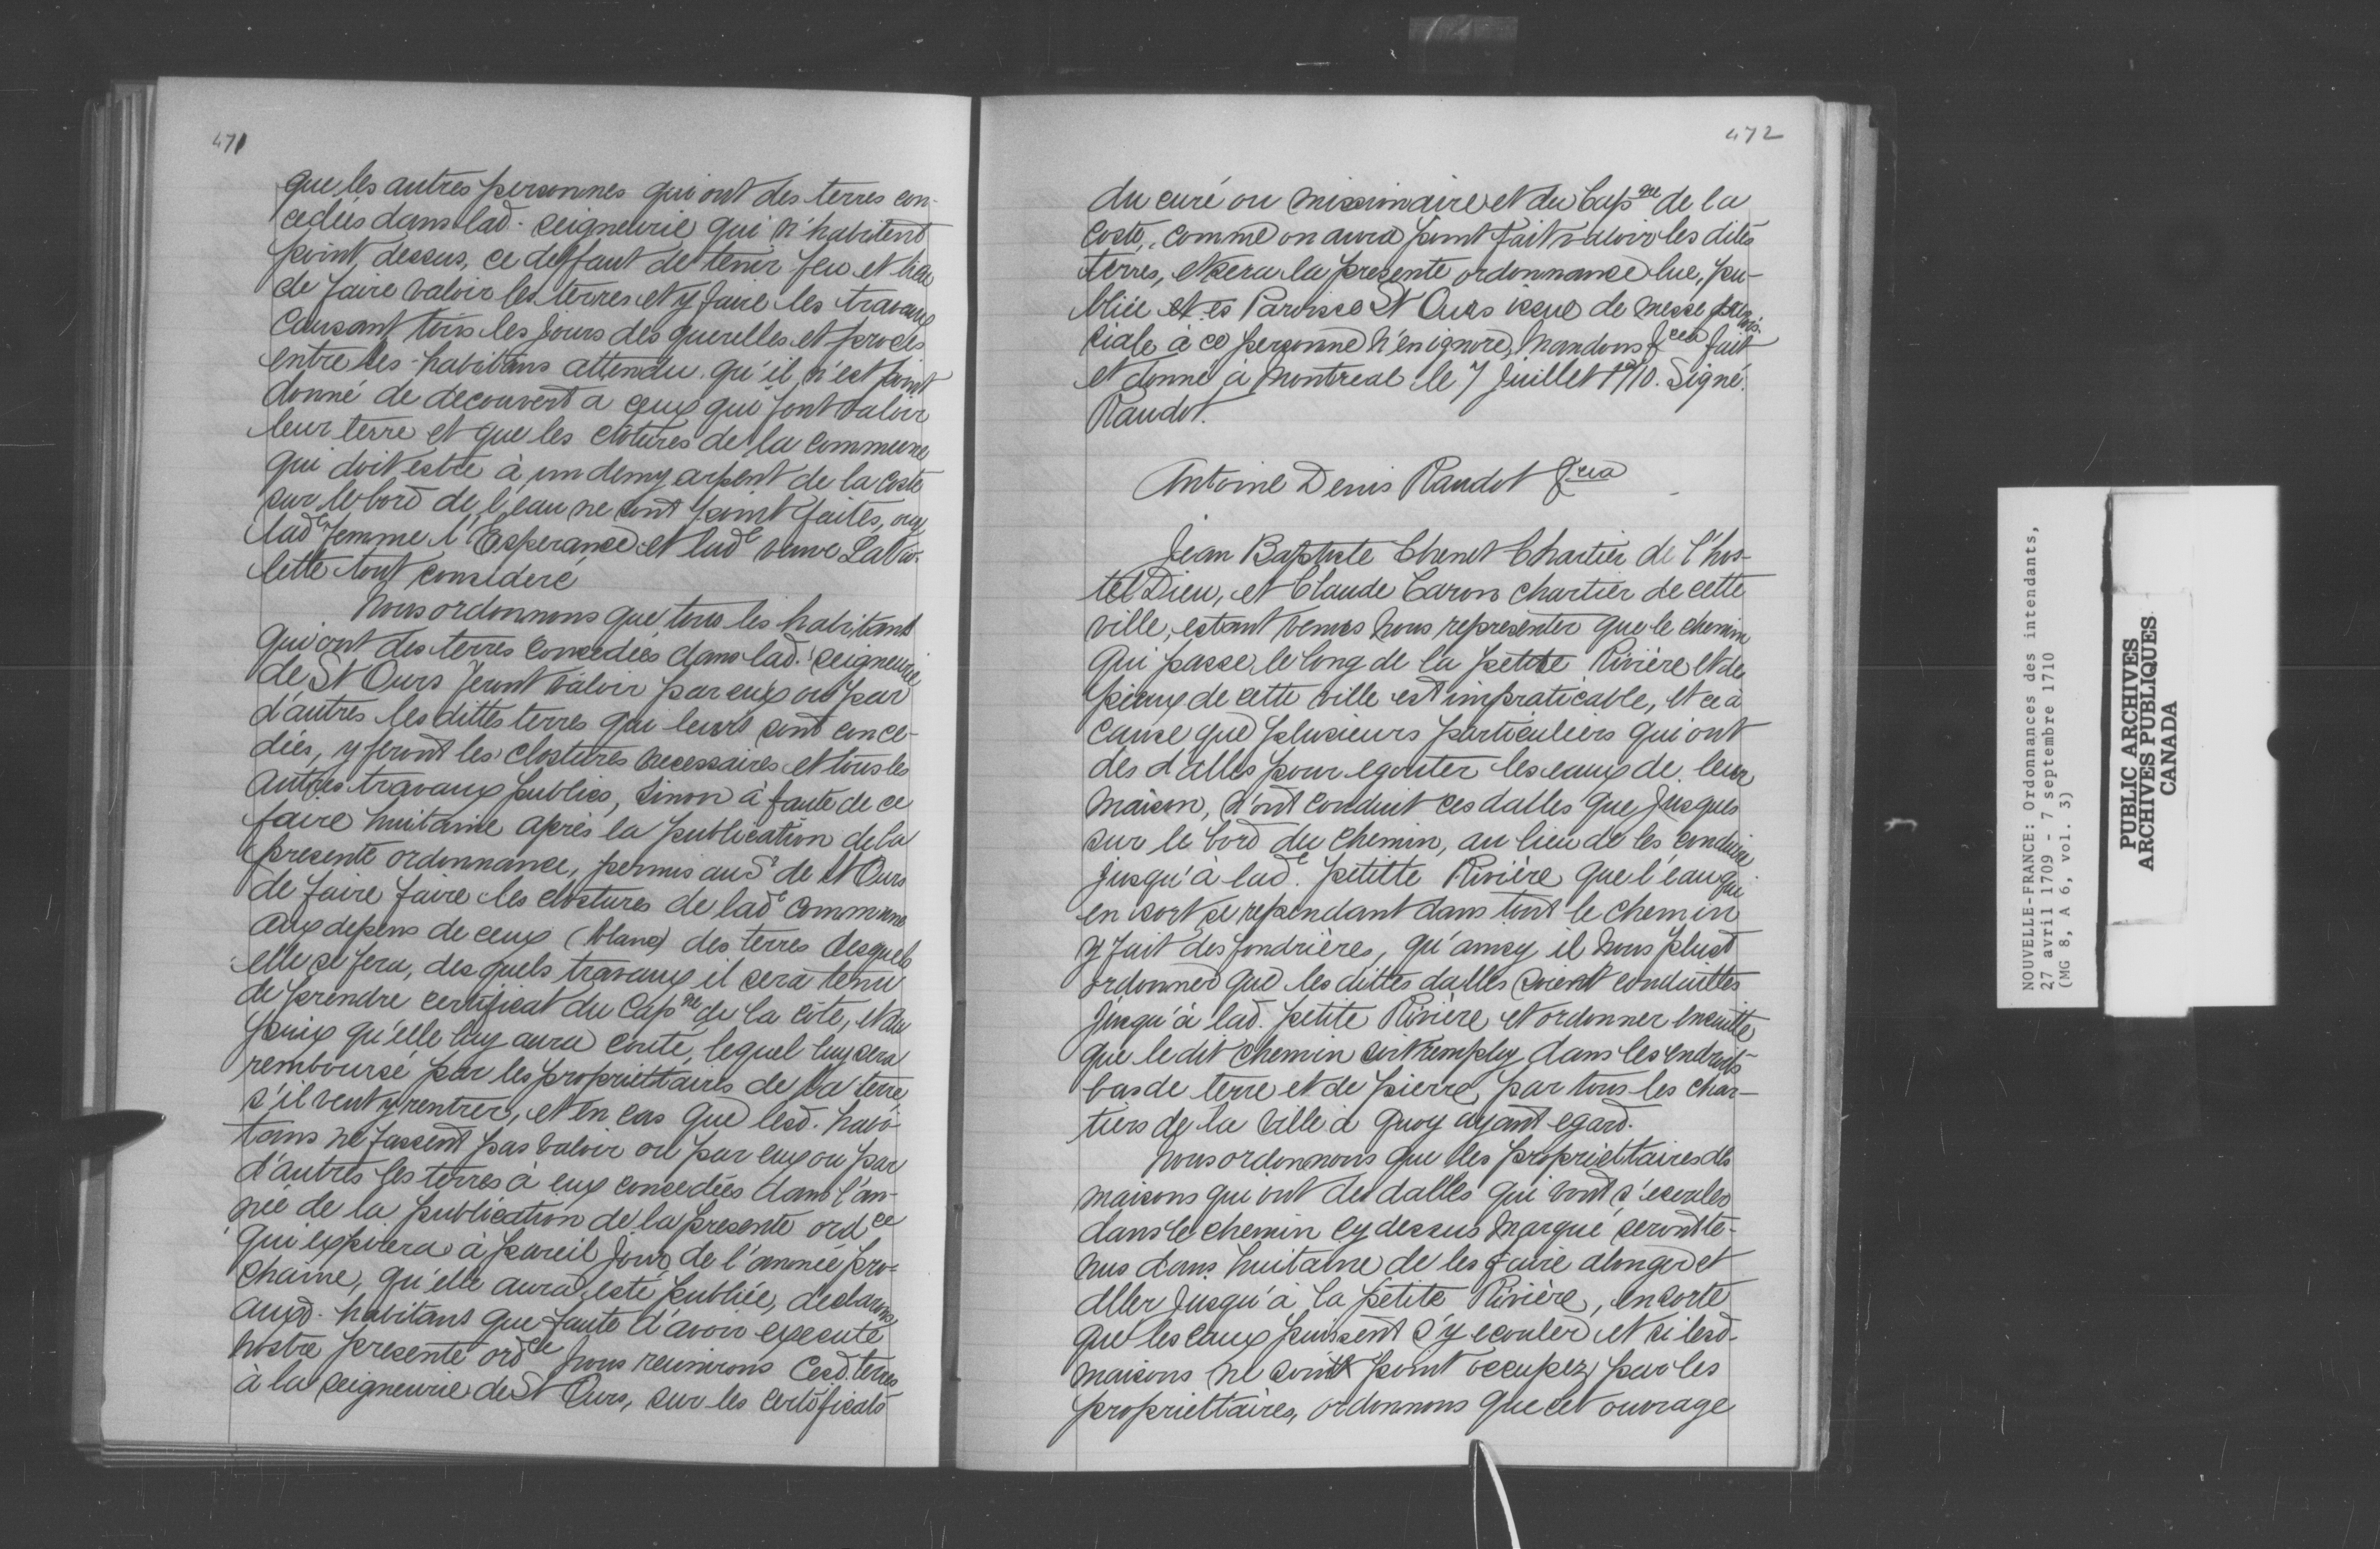 471
que les autres personnes qui ont des terres con-
cedées dans lad. seigneurie qui n'habitent
point dessus, ce deffaut de tenir feu et lieu
de faire valoir les terres et y faire les travaux
causant tous les jours des querelles et procès
entre les habitans attendu qu'il n'est point
donné de decouvert a ceux qui font valoir
leur terre et que les clotures de la commune
qui doit estre à un demy arpent de la coste
sur le bord de l'eau ne sont point faites, ouy
lade femme l'Esperance et lade veuve Lavio-
lette tout consideré
Nous ordonnons que tous les habitants
qui ont des terres concedées dans lad. seigneurie
de St Ours feront valoir par eux ou par
d'autres les dittes terres qui leurs sont conce-
dées, y feront les clostures necessaires et tous les
autres travaux publics, sinon à faute de ce
faire huitaine après la publication de la
presente ordonnance, permis au Sr de St Ours
de faire faire les clostures de lade commune
aux depens de ceux (blanc) des terres desquels
elle se fera, desquels travaux il sera tenu
de prendre certificat du Capne de la côte, et du
prix qu'elle luy aura couté, lequel luy sera
remboursé par les propriettaires de la terre
s'il veut y rentrer, et en cas que lesd. habi-
tans ne fassent pas valoir ou par eux ou par
d'autres les terres à eux concedées dans l'an-
née de la publication de la presente ordce
qui expirera à pareil jour de l'année pro-
chaine, qu'elle aura esté publiée, declarons
auxd. habitans que faute d'avoir executé
nostre presente ordce nous reunirons lesd. terres
à la seigneurie de St Ours, sur les certificats
472
du curé ou missionnaire et du Capne de la
coste, comme on aura point fait valoir les dites
terres, et sera la presente ordonnance lue, pu-
bliée et es Paroisse St Ours issue de messe parois-
siale à ce personne n'en ignore, Mandons &cea fait
et donné à Montreal le 7 juillet 1710. Signé.
Raudot.
Antoine Denis Raudot &cea
Jean Baptiste Chenet Chartier de l'hos-
tel Dieu, et Claude Caron chartier de cette
ville, estant venus nous representer que le chemin
qui passe le long de la petite Rivière et des
pieux de cette ville est impraticable, et ce à
cause que plusieurs particuliers qui ont
des dalles pour egouter les eaux de leur
maison, n'ont conduit ces dalles que jusques
sur le bord du chemin, au lieu de les conduire
jusqu'à lade. petitte Rivière que l'eau qui
en sort se rependant dans tout le chemin
y fait des fondrières, qu'ainsy il nous plust
ordonner que les dittes dalles soient conduittes
jusqu'à lad. petite Rivière et ordonner ensuitte
que le dit chemin soit remply dans les endroits
bas de terre et de pierre par tous les char-
tiers de la ville à quoy ayant egard.
Nous ordonnons que les propriettaires des
maisons qui ont des dalles qui vont s'ecouler
dans le chemin cy dessus marqué seront te-
nus dans huitaine de les faire alonger et
aller jusqu'à la petite Rivière, en sorte
que les eaux puissent s'y ecouler et si lesd.
maisons ne sont point occupez par les
propriettaires, ordonnons que cet ouvrage
NOUVELLE-FRANCE: Ordonnances des intendants,
27 avril 1709 - 7 septembre 1710
(MG 8, A 6, vol. 3)
PUBLIC ARCHIVES
ARCHIVES PUBLIQUES
CANADA